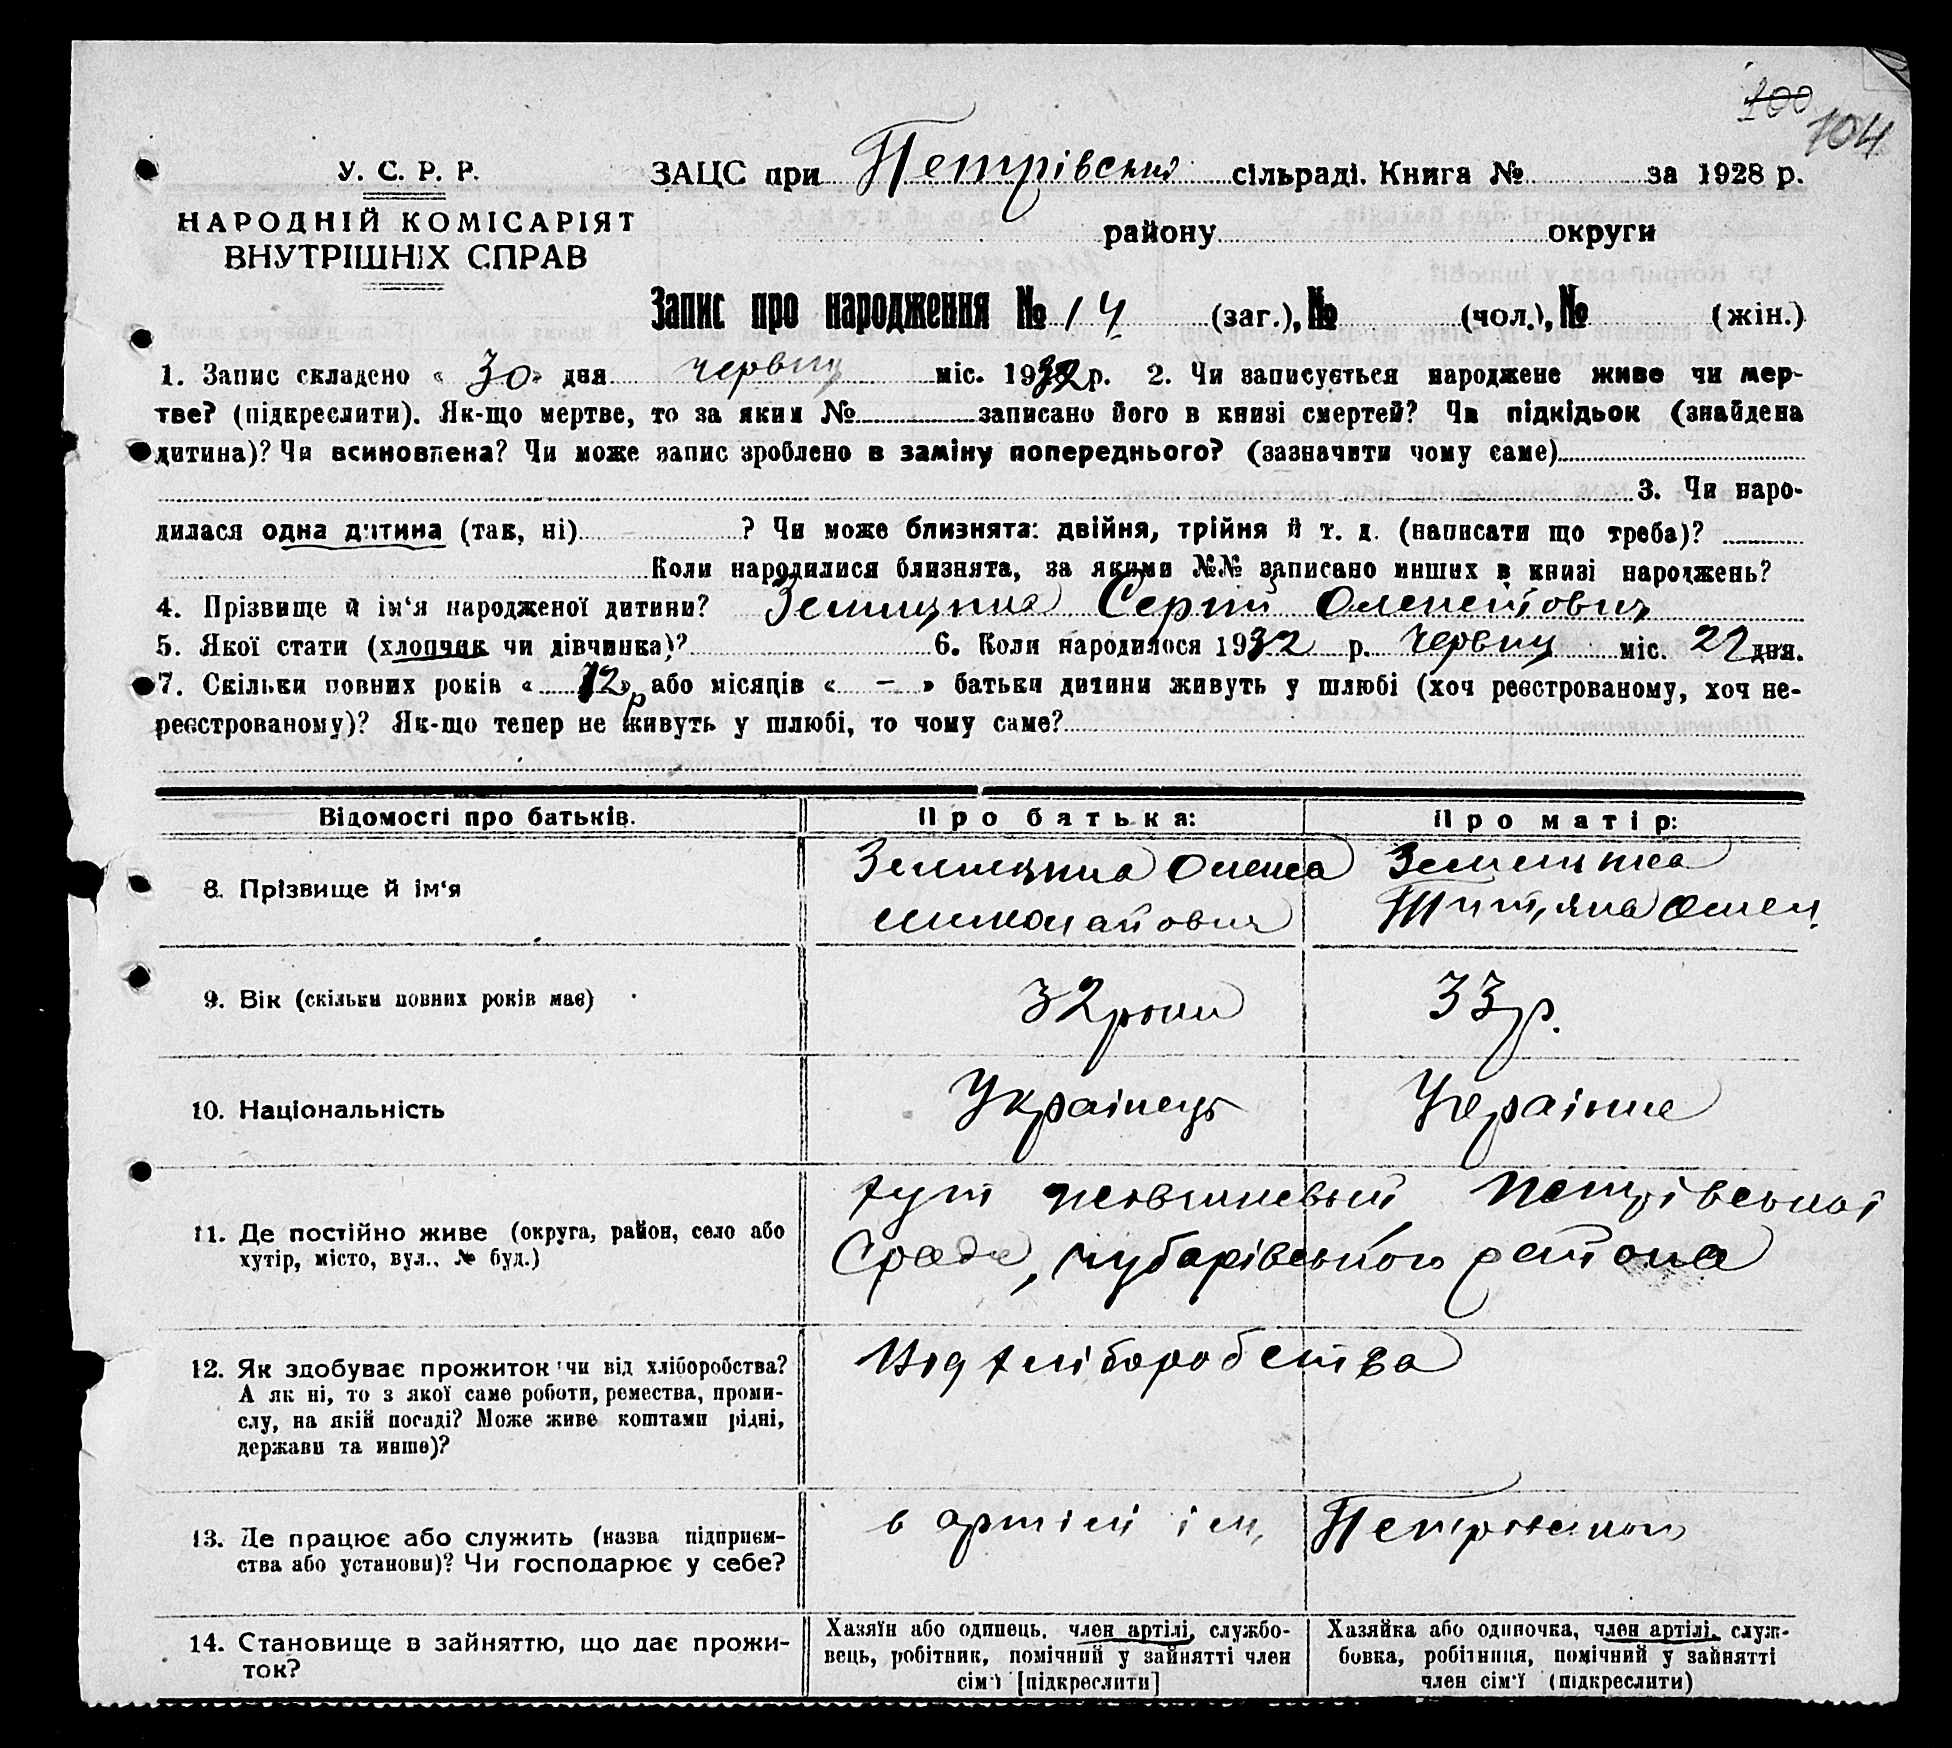 100
104
У. С. Р. Р.
НАРОДНІЙ КОМІСАРІЯТ
ВНУТРІШНІХ СПРАВ
ЗАЦС при Петрівській сільраді. Книга № за 1928 р.
району округи
Запис про народження № 14 (заг.), № (чол.), № (жін.)
1. Запис складено « 30 » дня червня міс. 1932 р. 2. Чи записується народжене живе чи мер-
тве? (підкреслити). Як-що мертве, то за яким № записано його в книзі смертей? Чи підкідьок (знайдена
дитина)? Чи всиновлена? Чи може запис зроблено в заміну попереднього? (зазначити чому саме)
3. Чи наро-
дилася одна дитина (так, ні) ? Чи може близнята: двійня, трійня й т. д. (написати що треба)?
Коли народилися близнята, за якими №№ записано инших в книзі народжень?
4. Прізвище й ім‘я народженої дитини? Сергій
5. Якої стати (хлопчик чи дівчинка)? 6. Коли народилося 1932 р. червня міс. 22 дня.
7. Скільки повних років « 12 » р або місяців « – » батьки дитини живуть у шлюбі (хоч реєстрованому, хоч не-
реєстрованому)? Як-що тепер не живуть у шлюбі, то чому саме?
Відомості про батьків.
Про батька:
Про матір:
8. Прізвище й ім‘я
9. Вік (скільки повних років має)
32 роки
33 р.
10. Національність
Українець
Українка
11. Де постійно живе (округа, район, село або
хутір, місто, вул., № буд.)
хут Петрівської
Сради, Чубарівського района
12. Як здобуває прожиток чи від хліборобства?
А як ні, то з якої саме роботи, ремества, проми-
слу, на якій посаді? Може живе коштами рідні,
держави та инше)?
Від хліборобства
13. Де працює або служить (назва підприєм-
ства або установи)? Чи господарює у себе?
в артілі ім. Петровского
14. Становище в зайняттю, що дає прожи-
ток?
Хазяїн або одинець, член артілі, службо-
вець, робітник, помічний у зайнятті член
сім‘ї [підкреслити]
Хазяйка або одиночка, член артілі, служ-
бовка, робітниця, помічний у зайнятті
член сім‘ї (підкреслити)